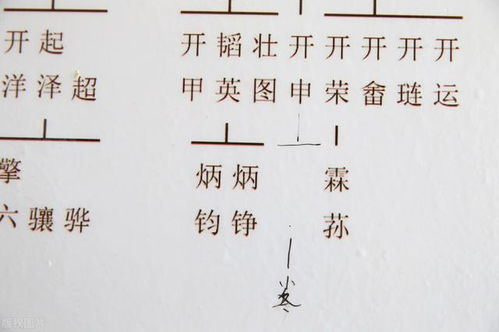 开起 开韬壮开开开开开
洋泽超 甲英图申荣畬琏运
擎 炳炳 霖
骧骅 钧铮 荪